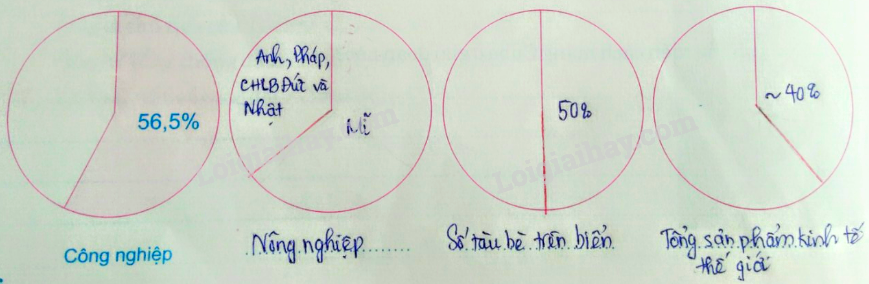 56,5%
Công nghiệp
Anh, Pháp,
CHLB Đức và
Nhật
Mĩ
Nông nghiệp
50%
Số tàu bè trên biển
~40%
Tổng sản phẩm kinh tế
thế giới
Loigiaihay.com
Loigiaihay.com